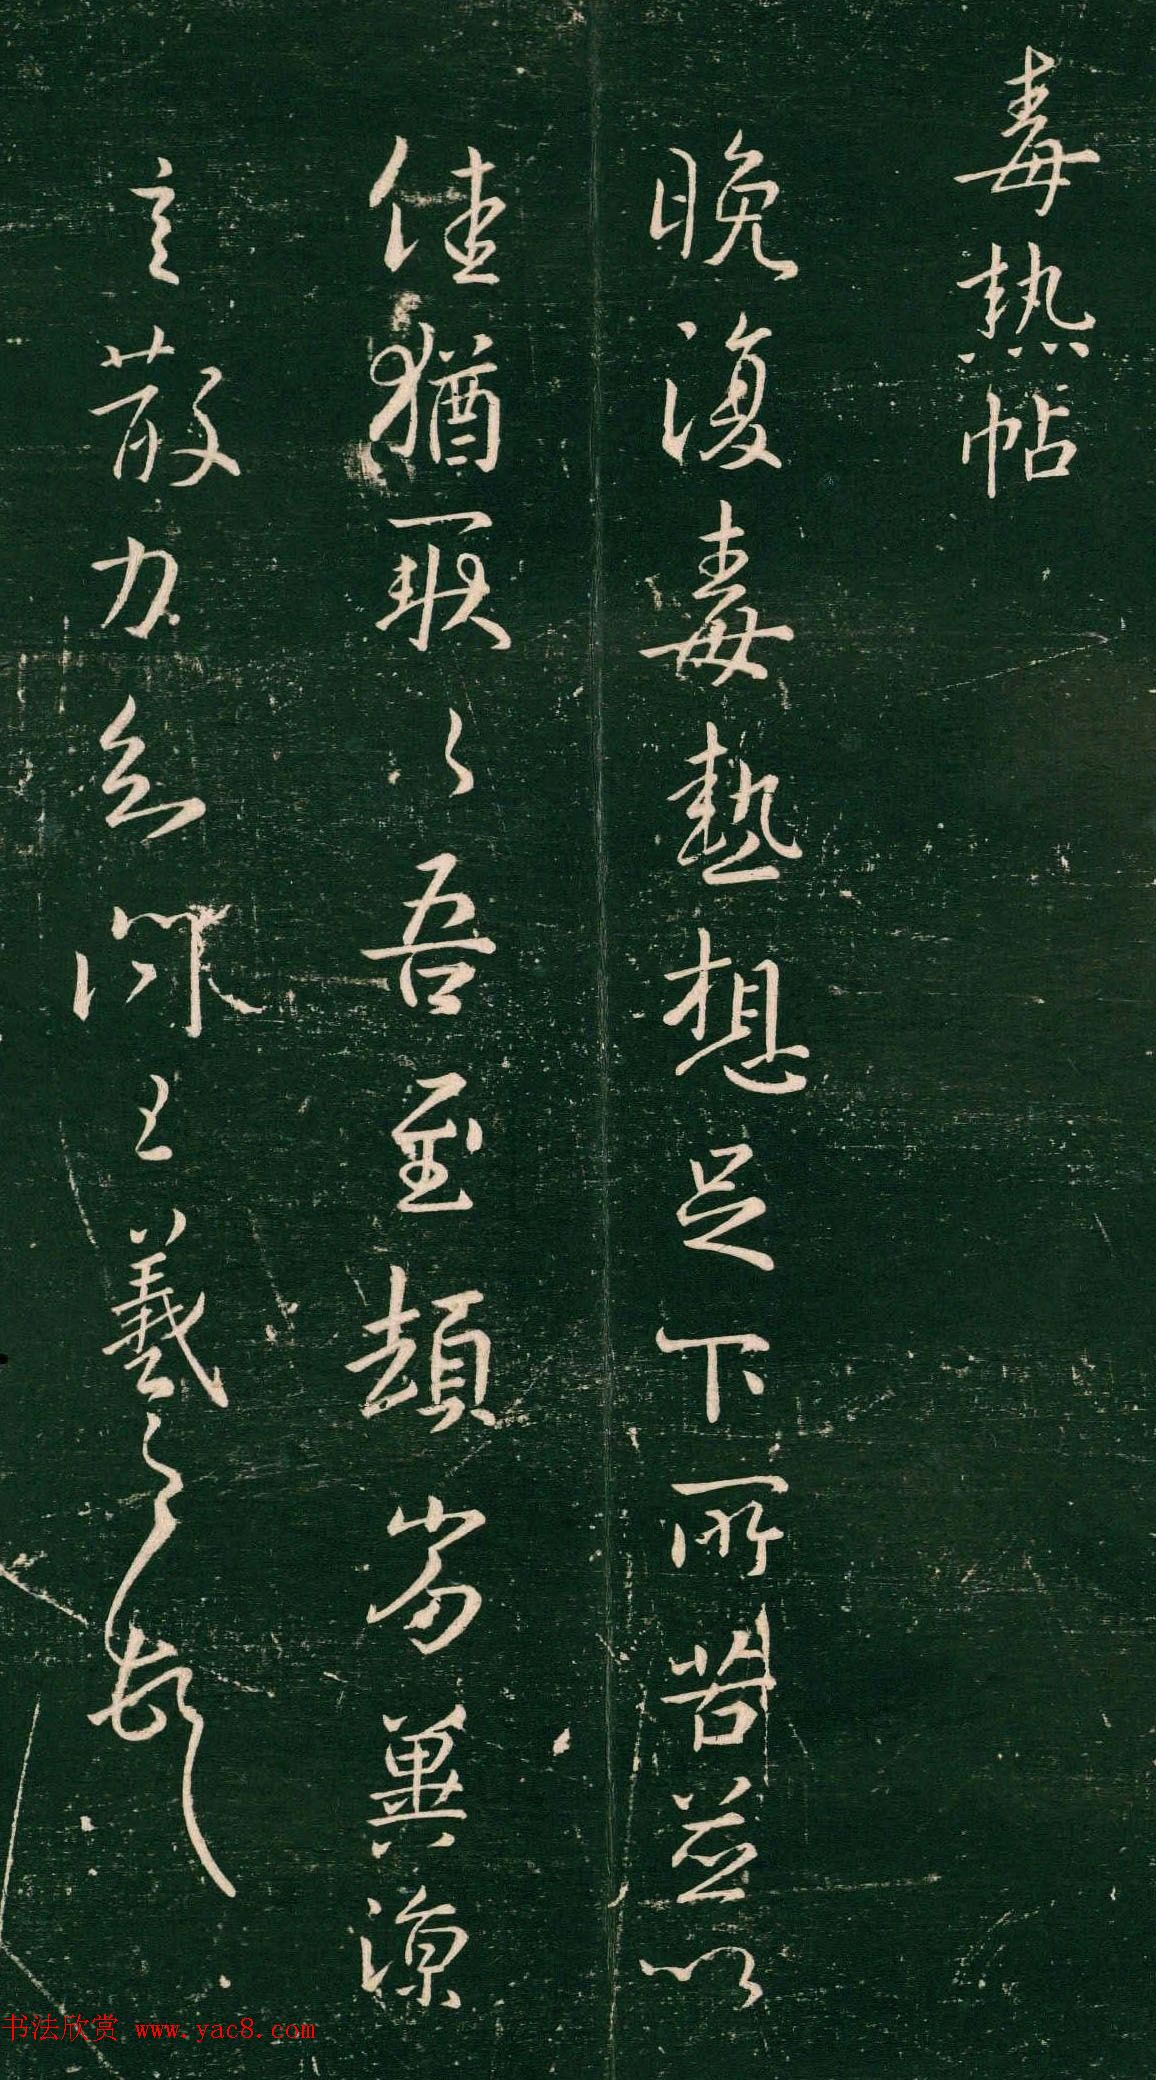 毒热帖
晚復毒熱想足下所苦並以
佳猶耿々吾至頓劣冀涼
言散力知問王羲之頓首
书法欣赏 www.yac8.com